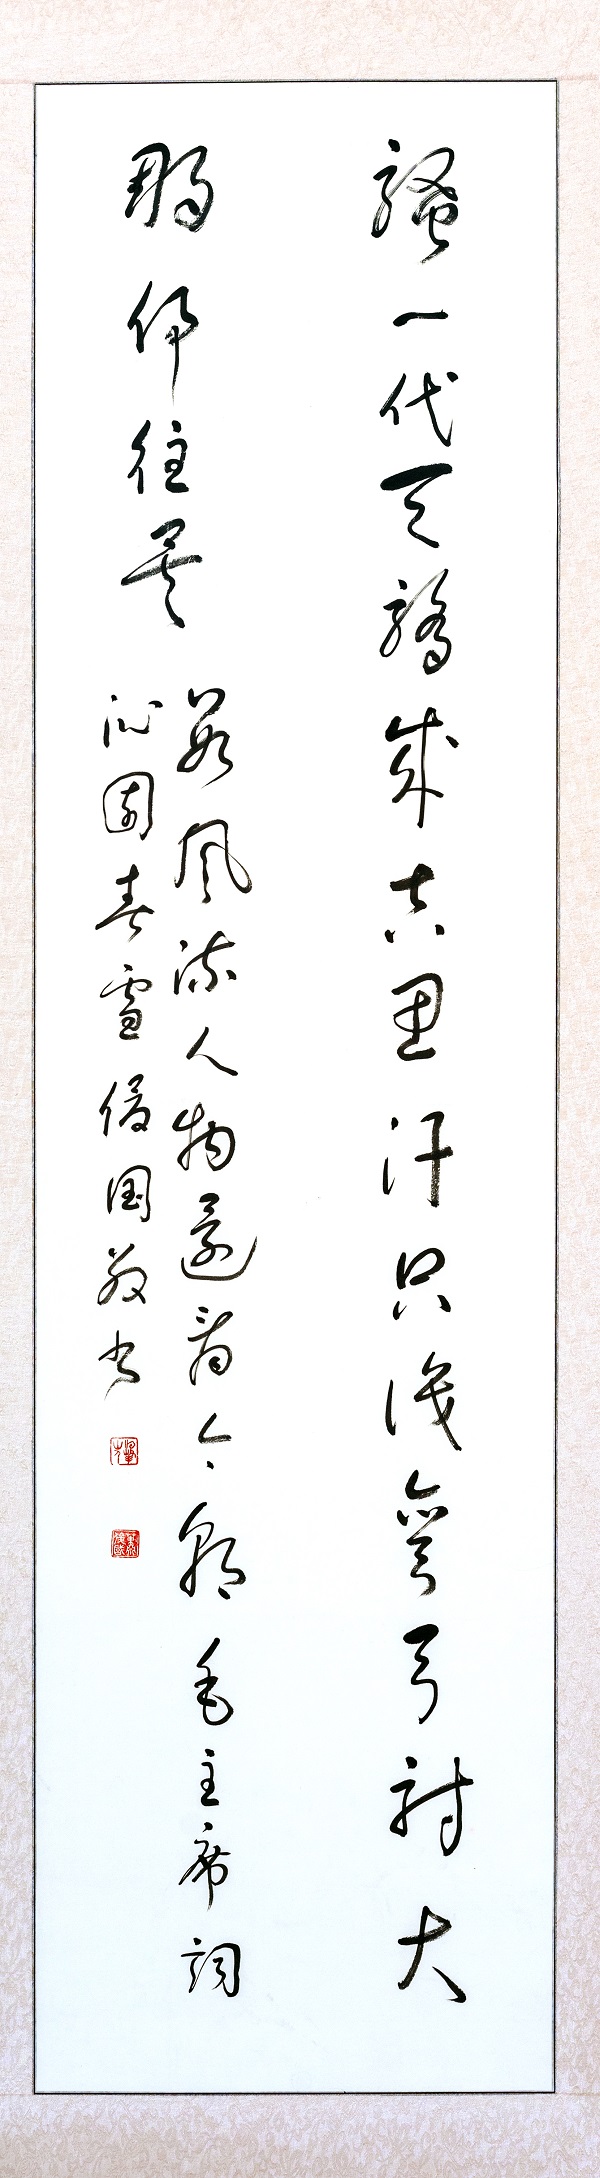 騷一代天驕成吉思汗只識彎弓射大
鵰俱往矣
數風流人物還看今朝毛主席詞
沁園春雪國敬书